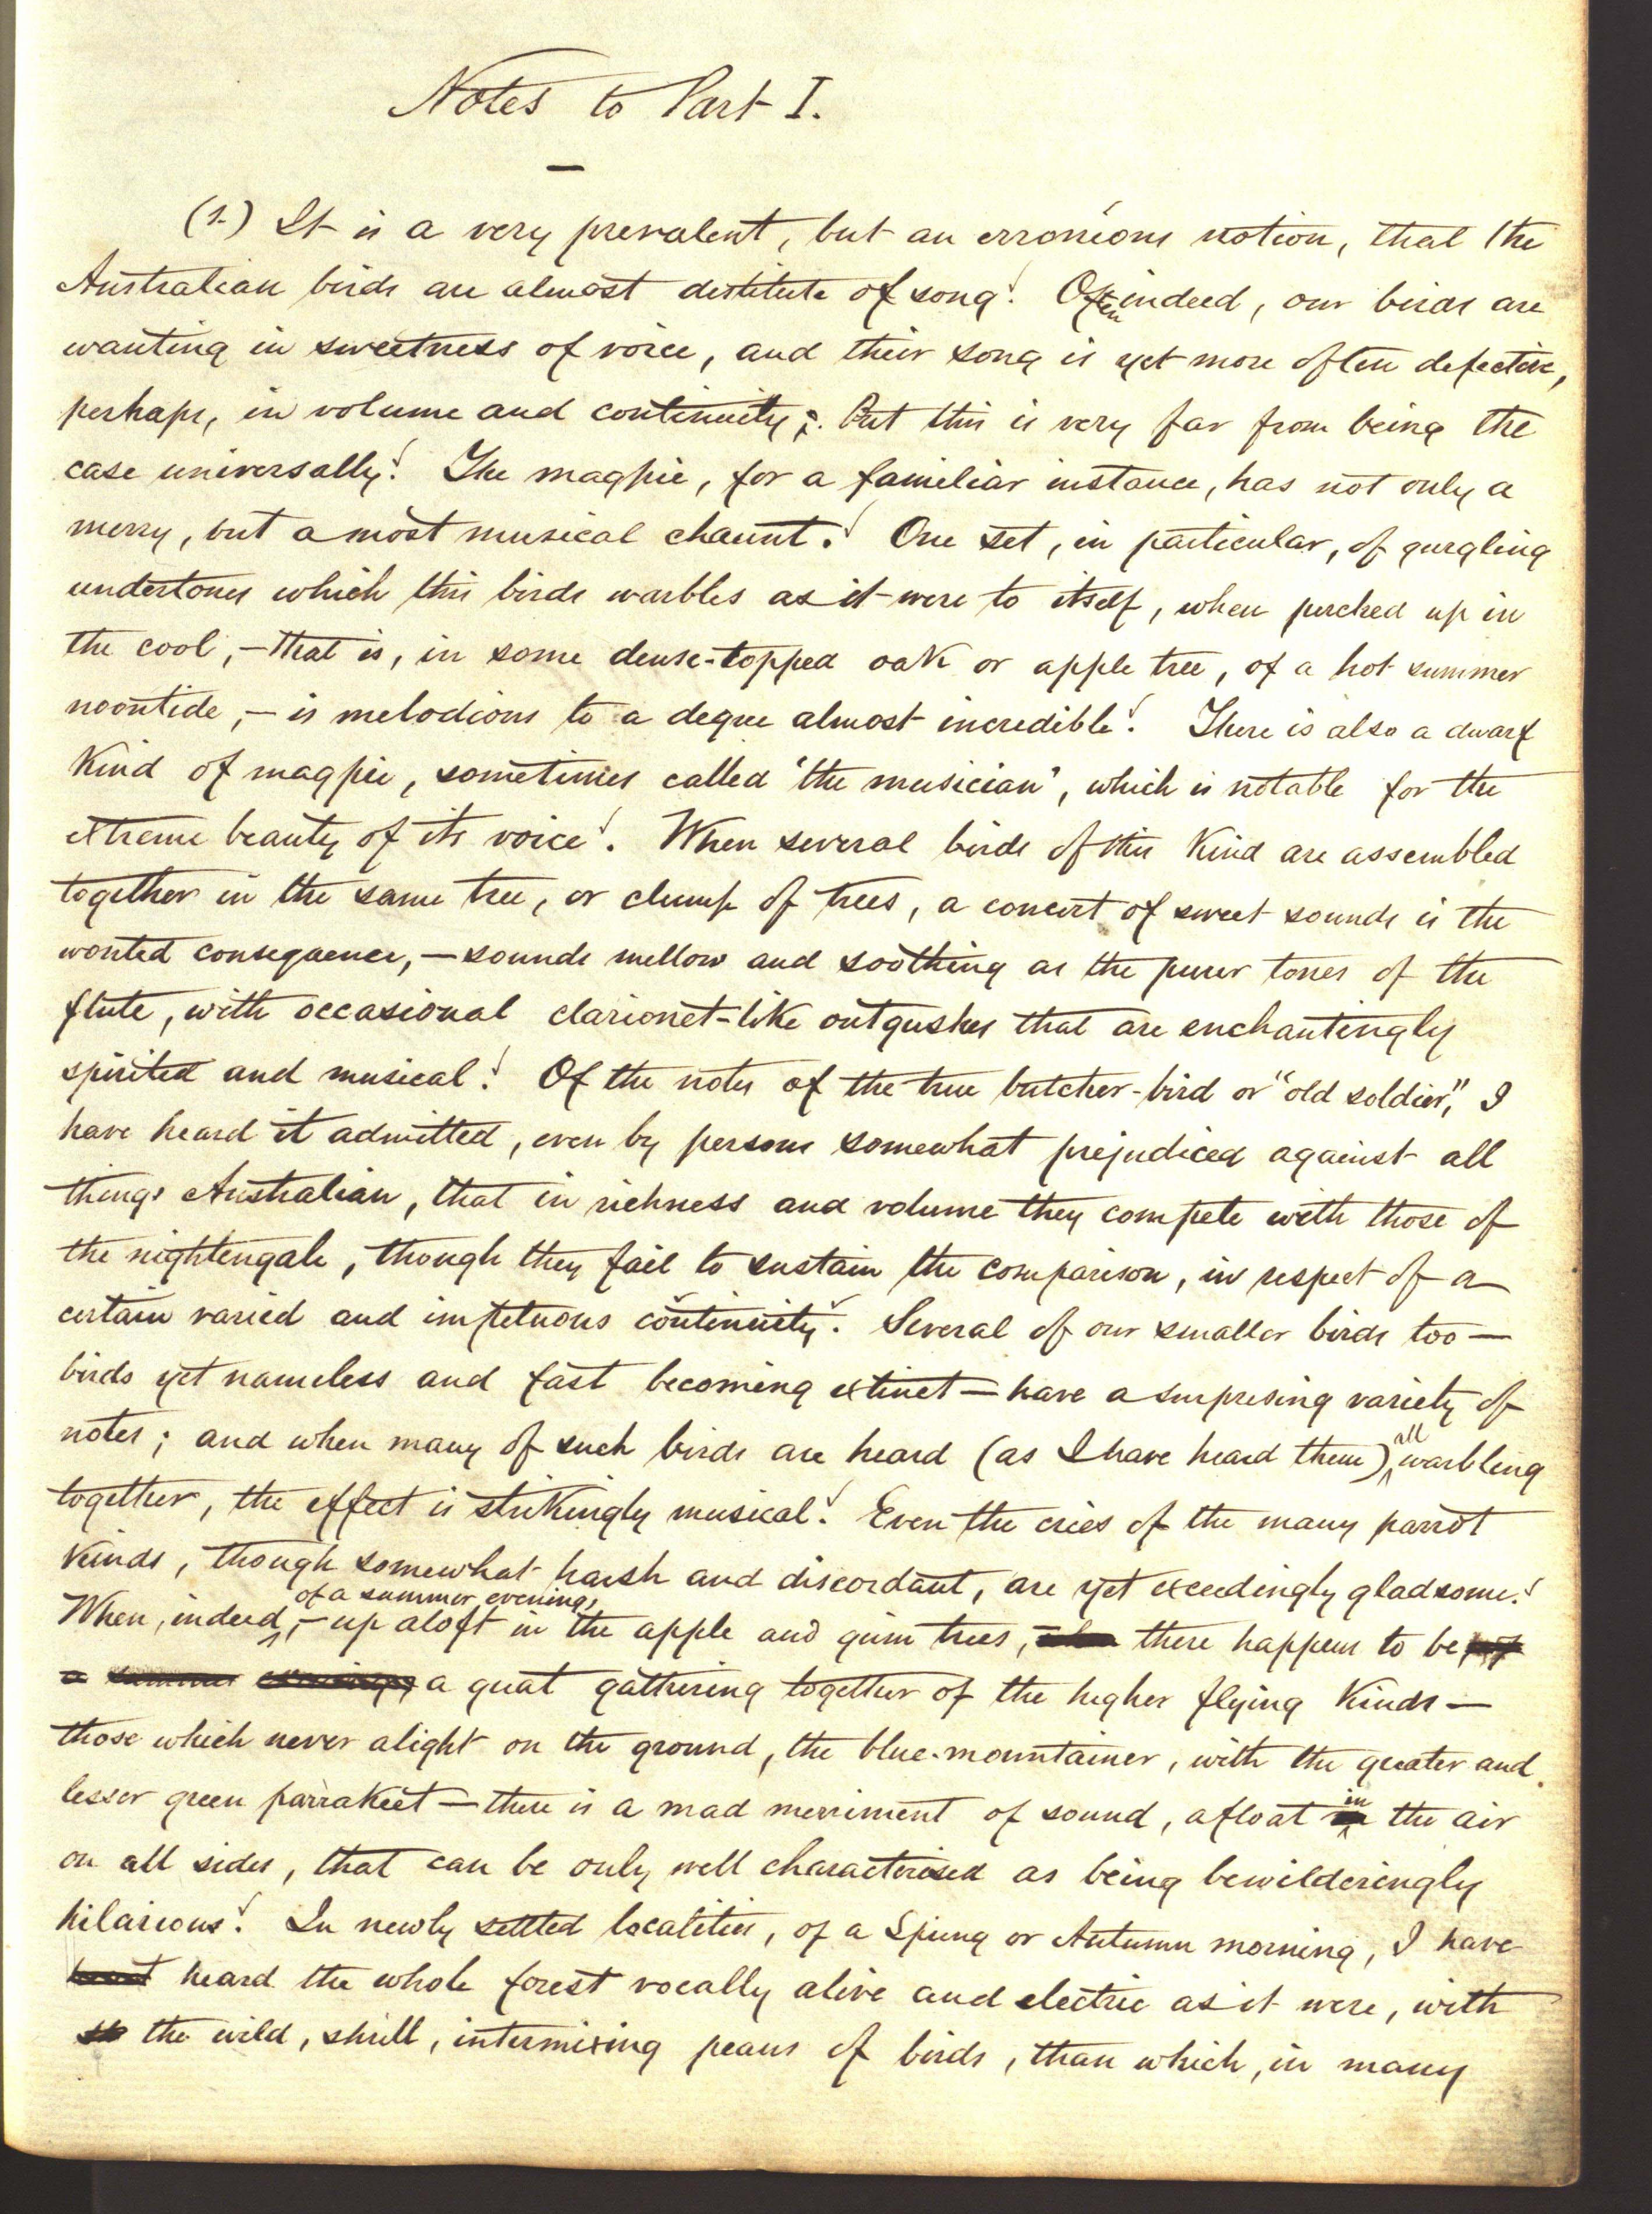 Notes to Part I.
(1.) It is a very prevalent, but an erroneous notion, that the
Australian birds are almost destitute of song! Often indeed, our birds are
wanting in sweetness of voice, and their song is yet more often defective,
perhaps, in volume and continuity; but this is very far from being the
case universally! The magpie, for a familiar instance, has not only a
merry, but a most musical chaunt! One set, in particular, of gurgling
undertones which this birds warbles as it were to itself, when perched up in
the cool,—that is, in some dense-topped oak or apple tree, of a hot summer
noontide,—is melodious to a degree almost incredible! There is also a dwarf
kind of magpie, sometimes called 'the musician', which is notable for the
extreme beauty of its voice! When several birds of this kind are assembled
together in the same tree, or clump of trees, a concert of sweet sounds is the
wonted consequence,—sounds mellow and soothing as the purer tones of the
flute, with occasional clarionet-like outgushes that are enchantingly
spirited and musical! Of the notes of the true butcher-bird or "old soldier," I
have heard it admitted, even by persons somewhat prejudiced against all
things Australian, that in richness and volume they compete with those of
the nightengale, though they fail to sustain the comparison, in respect of a
certain varied and impetuous continuity! Several of our smaller birds too—
birds yet nameless and fast becoming extinct—have a surprising variety of
notes; and when many of such birds are heard (as I have heard them) all warbling
together, the effect is strikingly musical! Even the cries of the many parrot
kinds, though somewhat harsh and discordant, are yet exceedingly gladsome!
When, indeed, of a summer evening,—up aloft in the apple and gum trees, there happens to be
a summer evening, a great gathering together of the higher flying kinds—
those which never alight on the ground, the blue-mountainer, with the greater and
lesser green parrakeet—there is a mad merriment of sound, afloat in the air
on all sides, that can be only well characterised as being bewilderingly
hilarious! In newly settled localities, of a Spring or Autumn morning, I have
heard the whole forest vocally alive and electric as it were, with
the wild, shrill, intermixing peans of birds, than which, in many